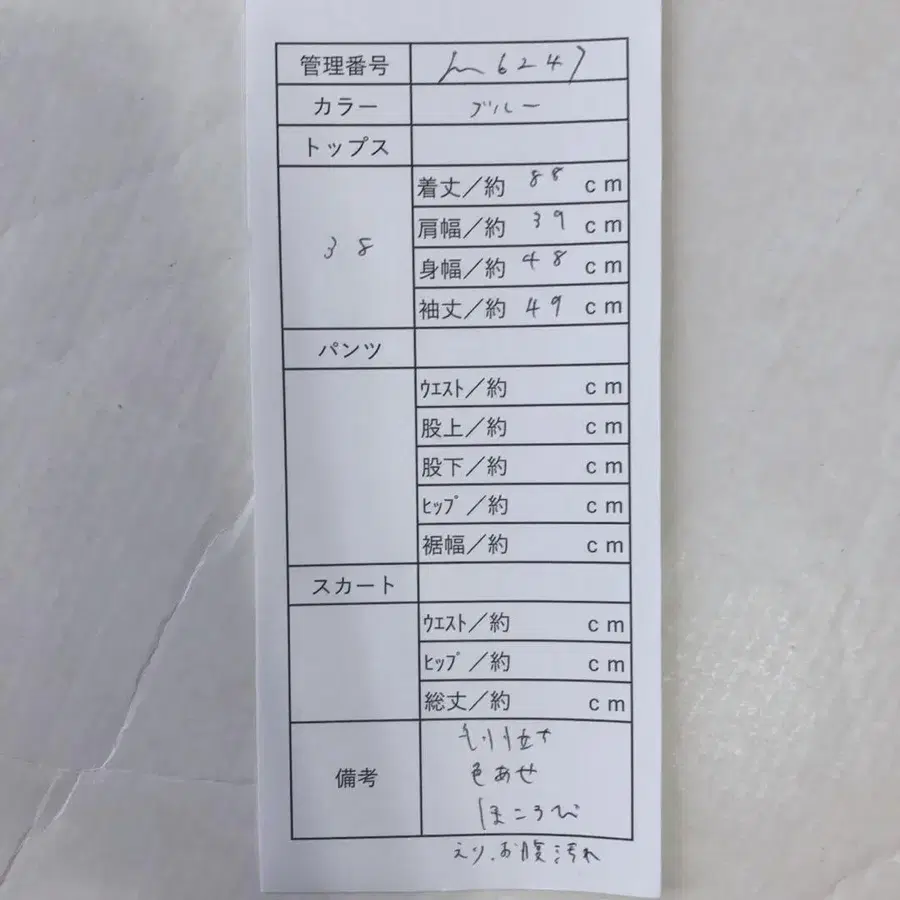 管理番号 6247
カラー ブルー
トップス
38
着丈／約 88 cm
肩幅／約 39 cm
身幅／約 48 cm
袖丈／約 49 cm
パンツ
ウエスト／約 cm
股上／約 cm
股下／約 cm
ヒップ／約 cm
裾幅／約 cm
スカート
ウエスト／約 cm
ヒップ／約 cm
総丈／約 cm
備考
色あせ
ほころび
えり、お腹汚れ